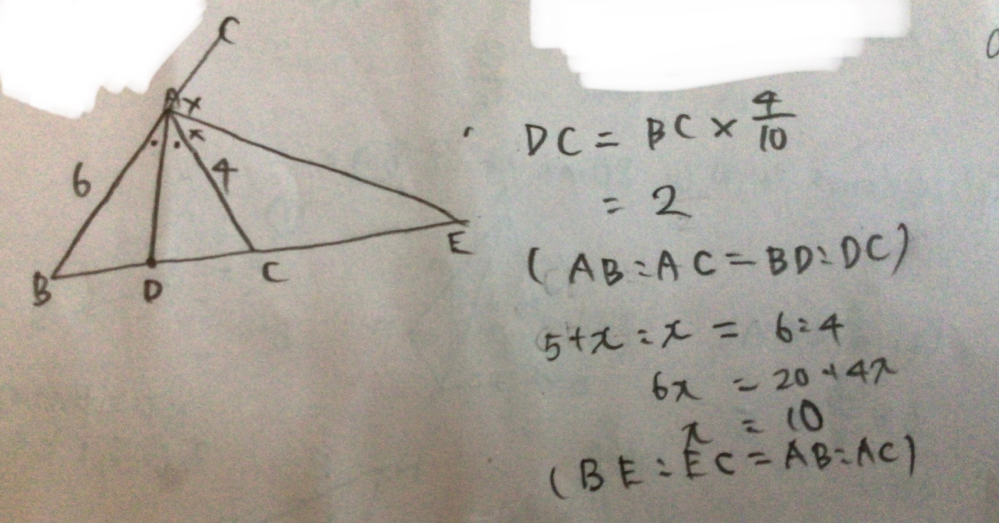 C
A
×
×
6
4
B
D
C
E
DC = BC × 4/10
= 2
(AB:AC=BD:DC)
5+x:x = 6:4
6x = 20+4x
x = 10
(BE:EC=AB:AC)